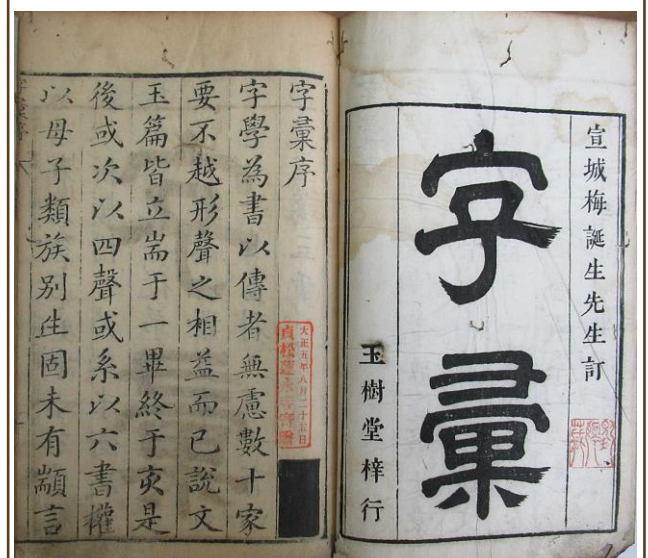 宣城梅誕生先生訂
字彙
玉樹堂梓行
字彙序
字學為書以傳者無慮數十家
要不越形聲之相益而已說文
玉篇皆立耑于一畢終于亥是
後或次以四聲或系以六書權
以母子類族別生固未有顓言
大正五年八月二十五日